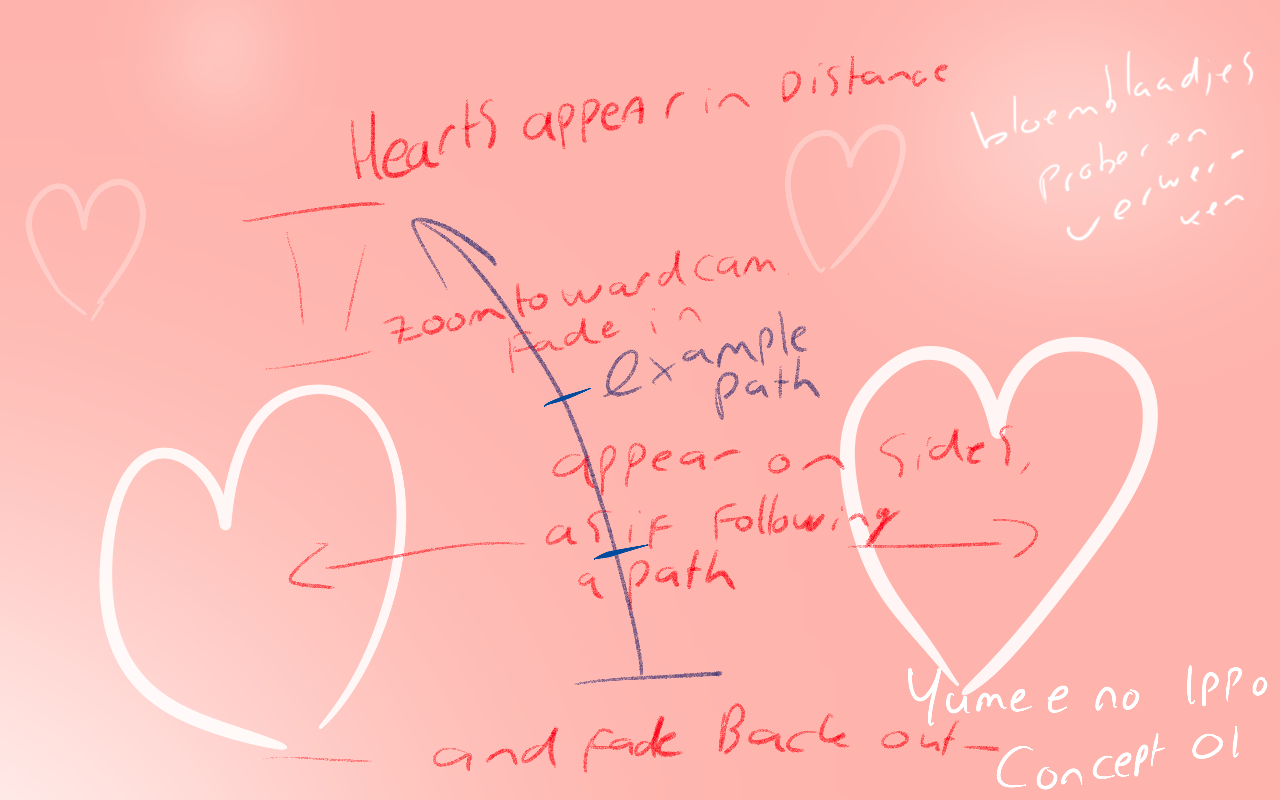 Hearts appear in Distance
bloemblaadjes
proberen
verwer-
ken
zoom toward cam
Fade in
example
path
appear on sides,
as if Following
a path
Yume e no Ippo
and fade Back out
Concept 01